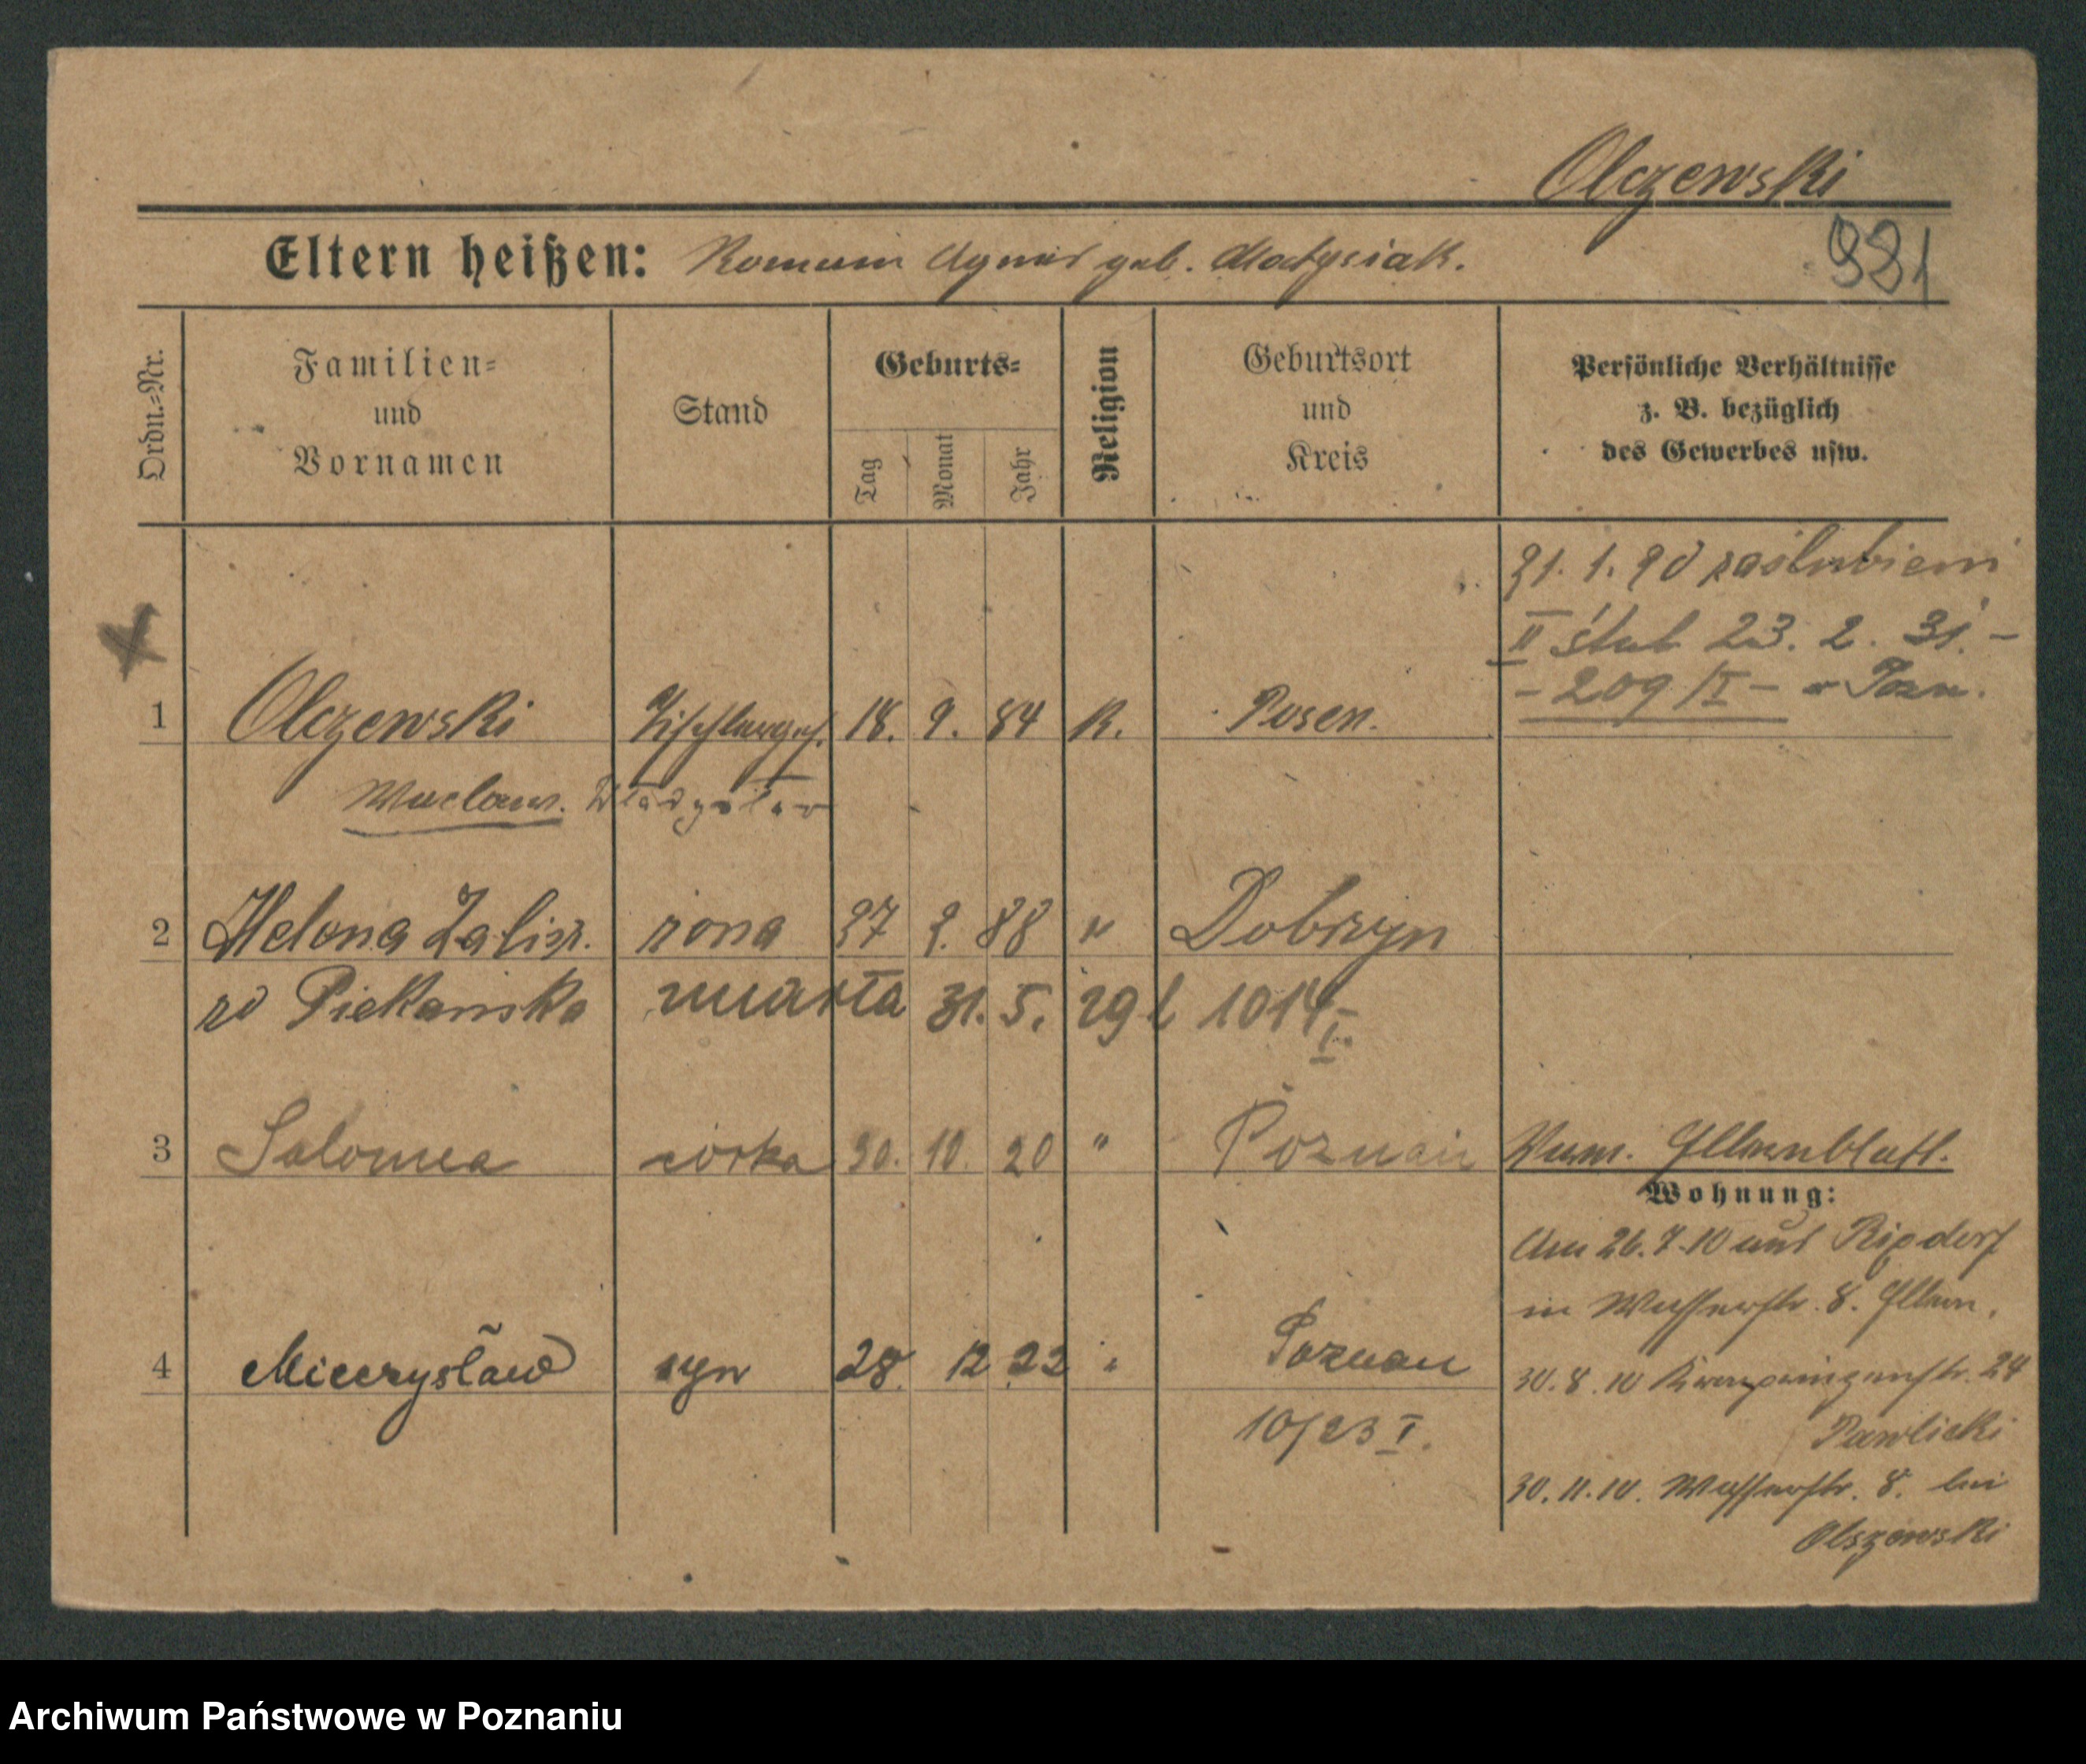 Olczewski
981
Eltern heißen: Roman Agnes geb. Matysiak.
Ordn.=Nr.
Familien=
und
Vornamen
Stand
Geburts=
Tag
Monat
Jahr
Religion
Geburtsort
und
Kreis
Persönliche Verhältnisse
z. B. bezüglich
des Gewerbes usw.
1.20 zaślubieni
II ślub 23. 2. 31. -
- 209/I - w Pozn.
1 Olczewski Tischlerges. 18. 9. 84 R. Posen.
Waclaw. Władysław
2 Helena Zalisz. żona 27 2. 88 " Dobrzyn
zd Piekańska zmarła 31. 5. 29 1014/I.
3 Salomea córka 30. 10. 20 " Poznań Elternblatt.
Wohnung:
Am 26. 7. 10 aus Rixdorf
in Wasserstr. 8. Eltern.
4 Mieczysław syn 28. 12 22 " Poznań
10/23 I.
30. 8. 10 Kronprinzenstr. 24
Pawlicki
30. 11. 10. Wasserstr. 8. bei
Olszewski
Archiwum Państwowe w Poznaniu